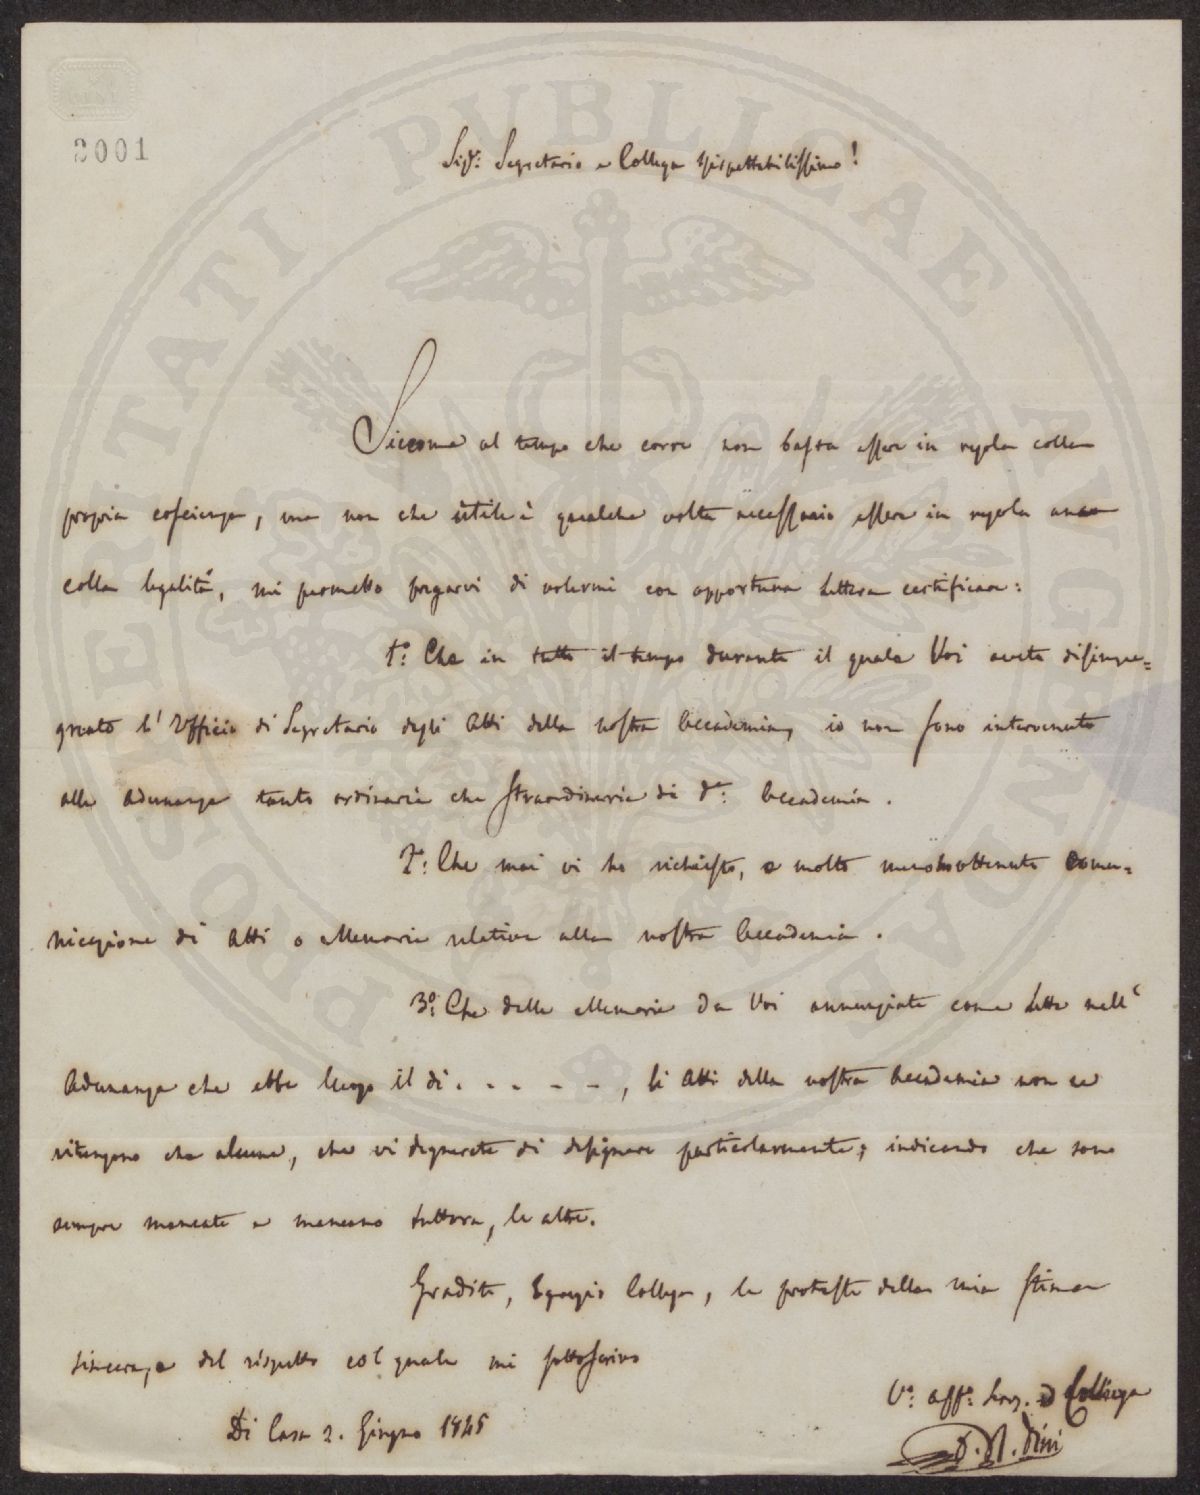 2001
Sigr: Segretario e Collega rispettabilissimo!
Siccome al tempo che corre non basta essere in regola colla
propria coscienza, ma non che utile è qualche volta necessario essere in regola anco
colla legalità, mi permetto pregarvi di volermi con opportuna lettera certificare:
1º: Che in tutto il tempo durante il quale Voi avete disimpe=
gnato l'Ufficio di Segretario degli Atti della nostra Accademia, io non sono intervenuto
alle adunanze tanto ordinarie che straordinarie di da: Accademia.
2º: Che mai vi ho richiesto, e molto meno ho ottenuto comu=
nicazione di Atti o Memorie relative alla nostra Accademia.
3º: Che delle Memorie da Voi annunziate come lette nell'
Adunanza che ebbe luogo il di . - - - -, li Atti della nostra Accademia non ne
ritengono che alcune, che vi degnerete di designare particolarmente; indicando che sono
sempre mancate e mancano tuttora, le altre.
Gradite, Egregio Collega, le proteste della mia stima
sincera, e del rispetto col quale mi sottoscrivo
Vo: Affo: Serv. e Collega
Di Casa 2. Giugno 1845
Dini
PROSPERITATI PUBLICAE AUGENDAE